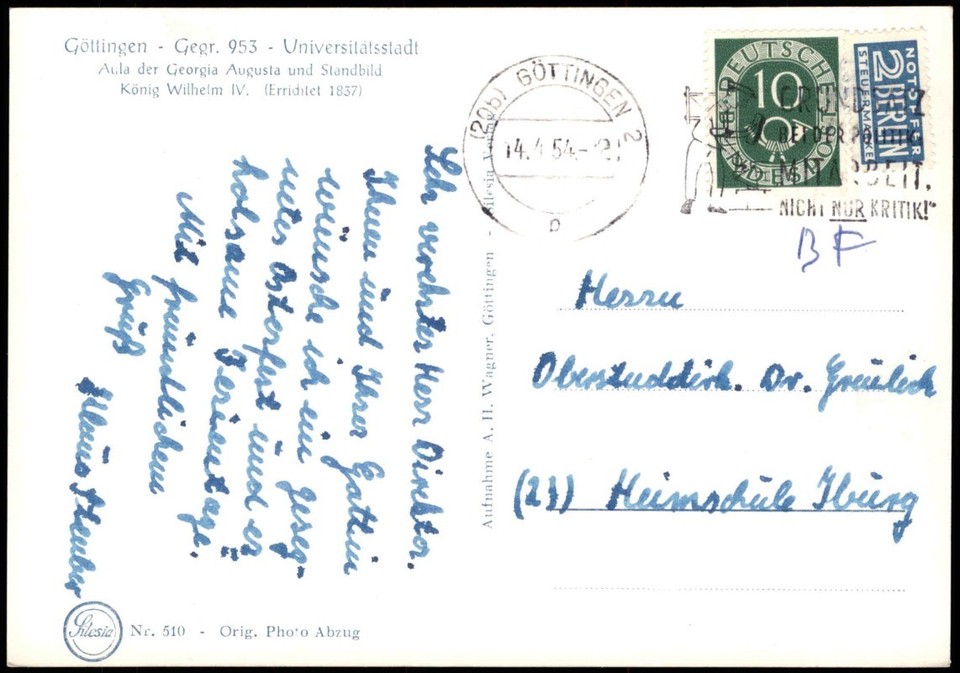 Göttingen - Gegr. 953 - Universitätsstadt
Aula der Georgia Augusta und Standbild
König Wilhelm IV. (Errichtet 1837)
Sehr verehrter Herr Direktor.
Ihnen und Ihrer Gattin
wünsche ich ein geseg-
netes Osterfest und er
holsame Ferientage.
Mit freundlichem
Gruß
Klaus
Silesia
Nr. 510 - Orig. Photo Abzug
Aufnahme A. H. Wagner, Göttingen - Silesia Verlag
(20b) GÖTTINGEN 2
14.4.54
b
DEUTSCHE
10
NOTOPFER
2 BERLIN
STEUERMARKE
BEI DER POLITIK
MITARBEIT,
NICHT NUR KRITIK!"
BF
Herrn
Oberstuddirk. Dr. Greulich
(23) Heimschule Iburg